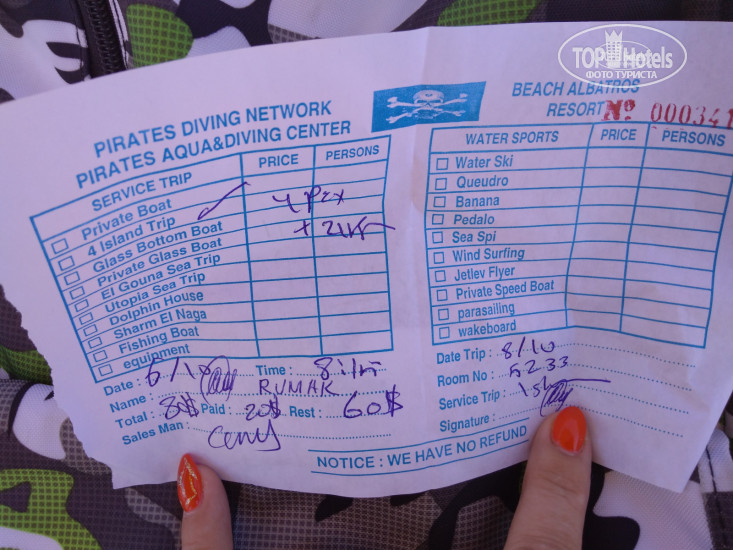 TOPHotels
ФОТО ТУРИСТА
PIRATES DIVING NETWORK
PIRATES AQUA&DIVING CENTER
SERVICE TRIP PRICE PERSONS
Private Boat
4 Island Trip
Glass Bottom Boat
Private Glass Boat
El Gouna Sea Trip
Utopia Sea Trip
Dolphin House
Sharm El Naga
Fishing Boat
equipment
Date : 6/10 Time :
Name : RUMAK
Total : 80$ Paid : 20$ Rest : 60$
Sales Man :
BEACH ALBATROS
RESORT Nº 000341
WATER SPORTS PRICE PERSONS
Water Ski
Queudro
Banana
Pedalo
Sea Spi
Wind Surfing
Jetlev Flyer
Private Speed Boat
parasailing
wakeboard
Date Trip : 8/10
Room No : 5233
Service Trip :
Signature :
NOTICE : WE HAVE NO REFUND